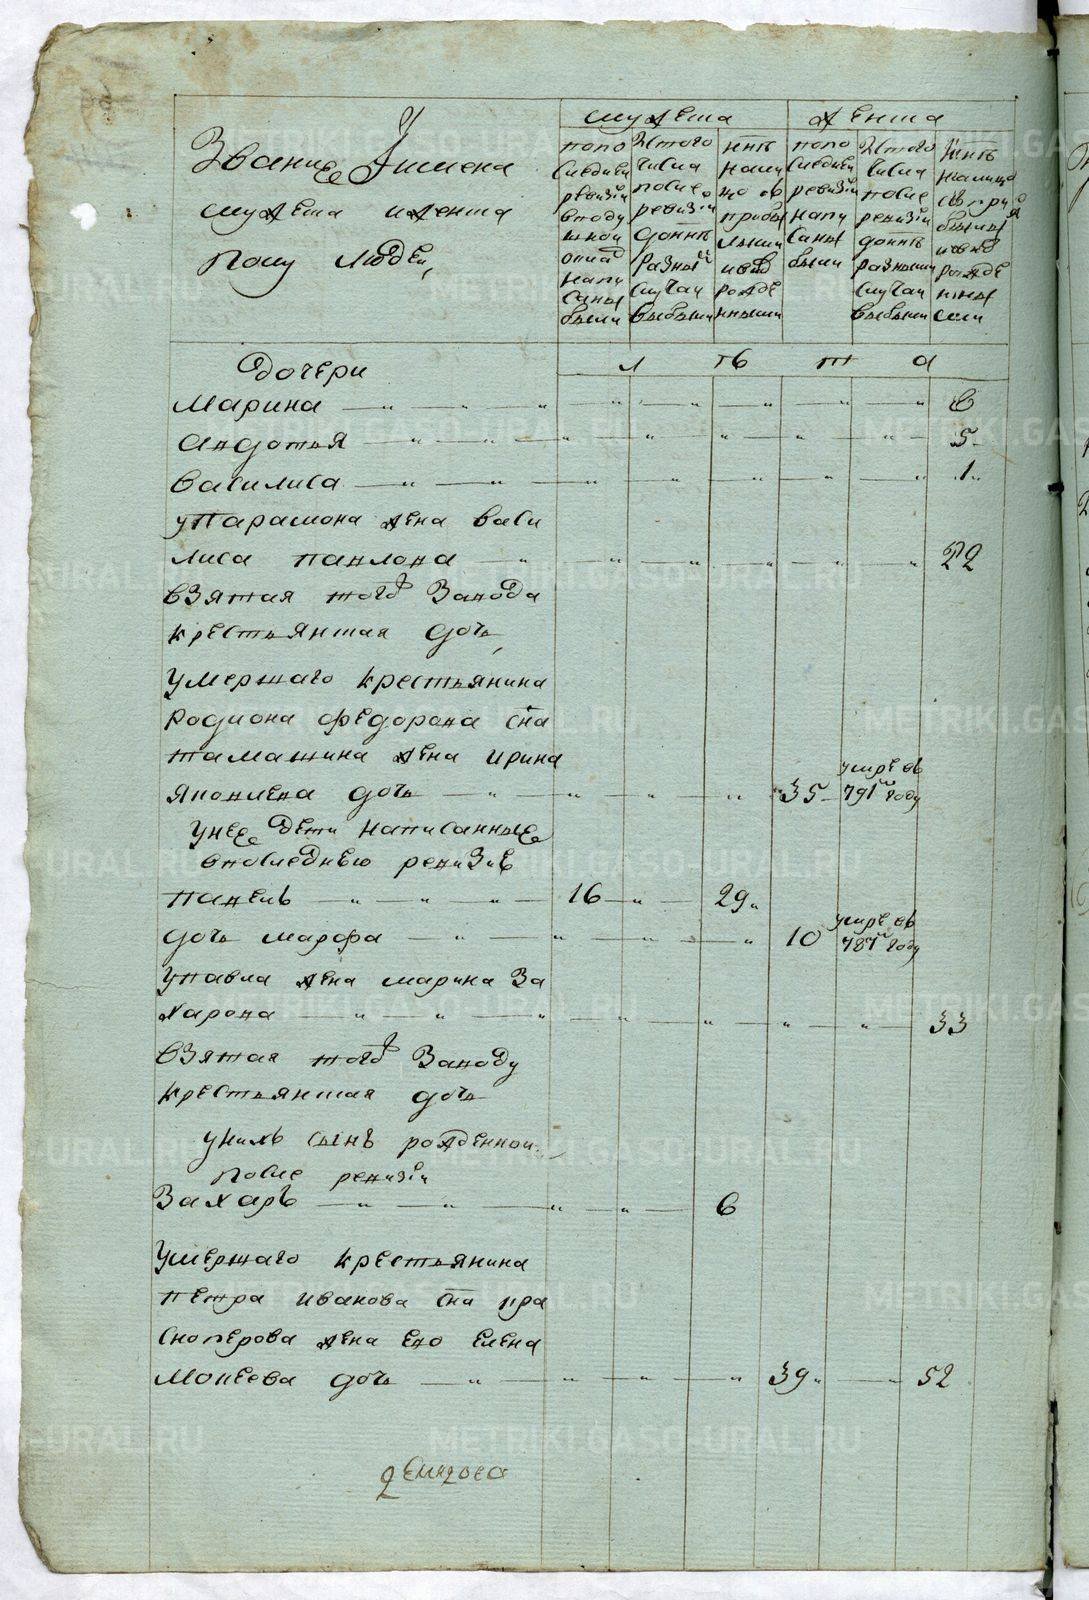 Звание Iимена
мужеска иженска
полу людей,
мужеска
по по
следней
ревизiи
вподу
шной
оклад
напи
саны
были
Изтого
числа
после
ревизiи
доннѣ
разный
случаи
выбыли
ннѣ
нали
цо съ
прибы
лыми
иновъ
рожде
нными
женска
по по
следней
ревизiи
напи
саны
были
Изтого
числа
после
ревизiи
доннѣ
разными
случаи
выбыли
ннѣ
налицо
съ при
былыми
иновъ
рожде
нны
ми
л ѣ т а
дочери
Марина 6
авдотья 5
василиса 1
упарамона жена васи
лиса павлова 22
взятая того завода
крестьянская дочь
умершаго крестьянина
родиона федорова сна
жена ирина
яковлева дочь 35 умре въ 791м году
унее дети написанные
впоследнею ревизiе
павелъ 16 29
дочь марфа 10 умре въ 787м году
упавла жена марина за
харова 33
взятая того заводу
крестьянская дочь
унихъ сынъ рожденной
после ревизiи
Захаръ 6
умершаго крестьянина
петра иванова сна пра
скоперова жена ево елена
мокеева дочь 39 52